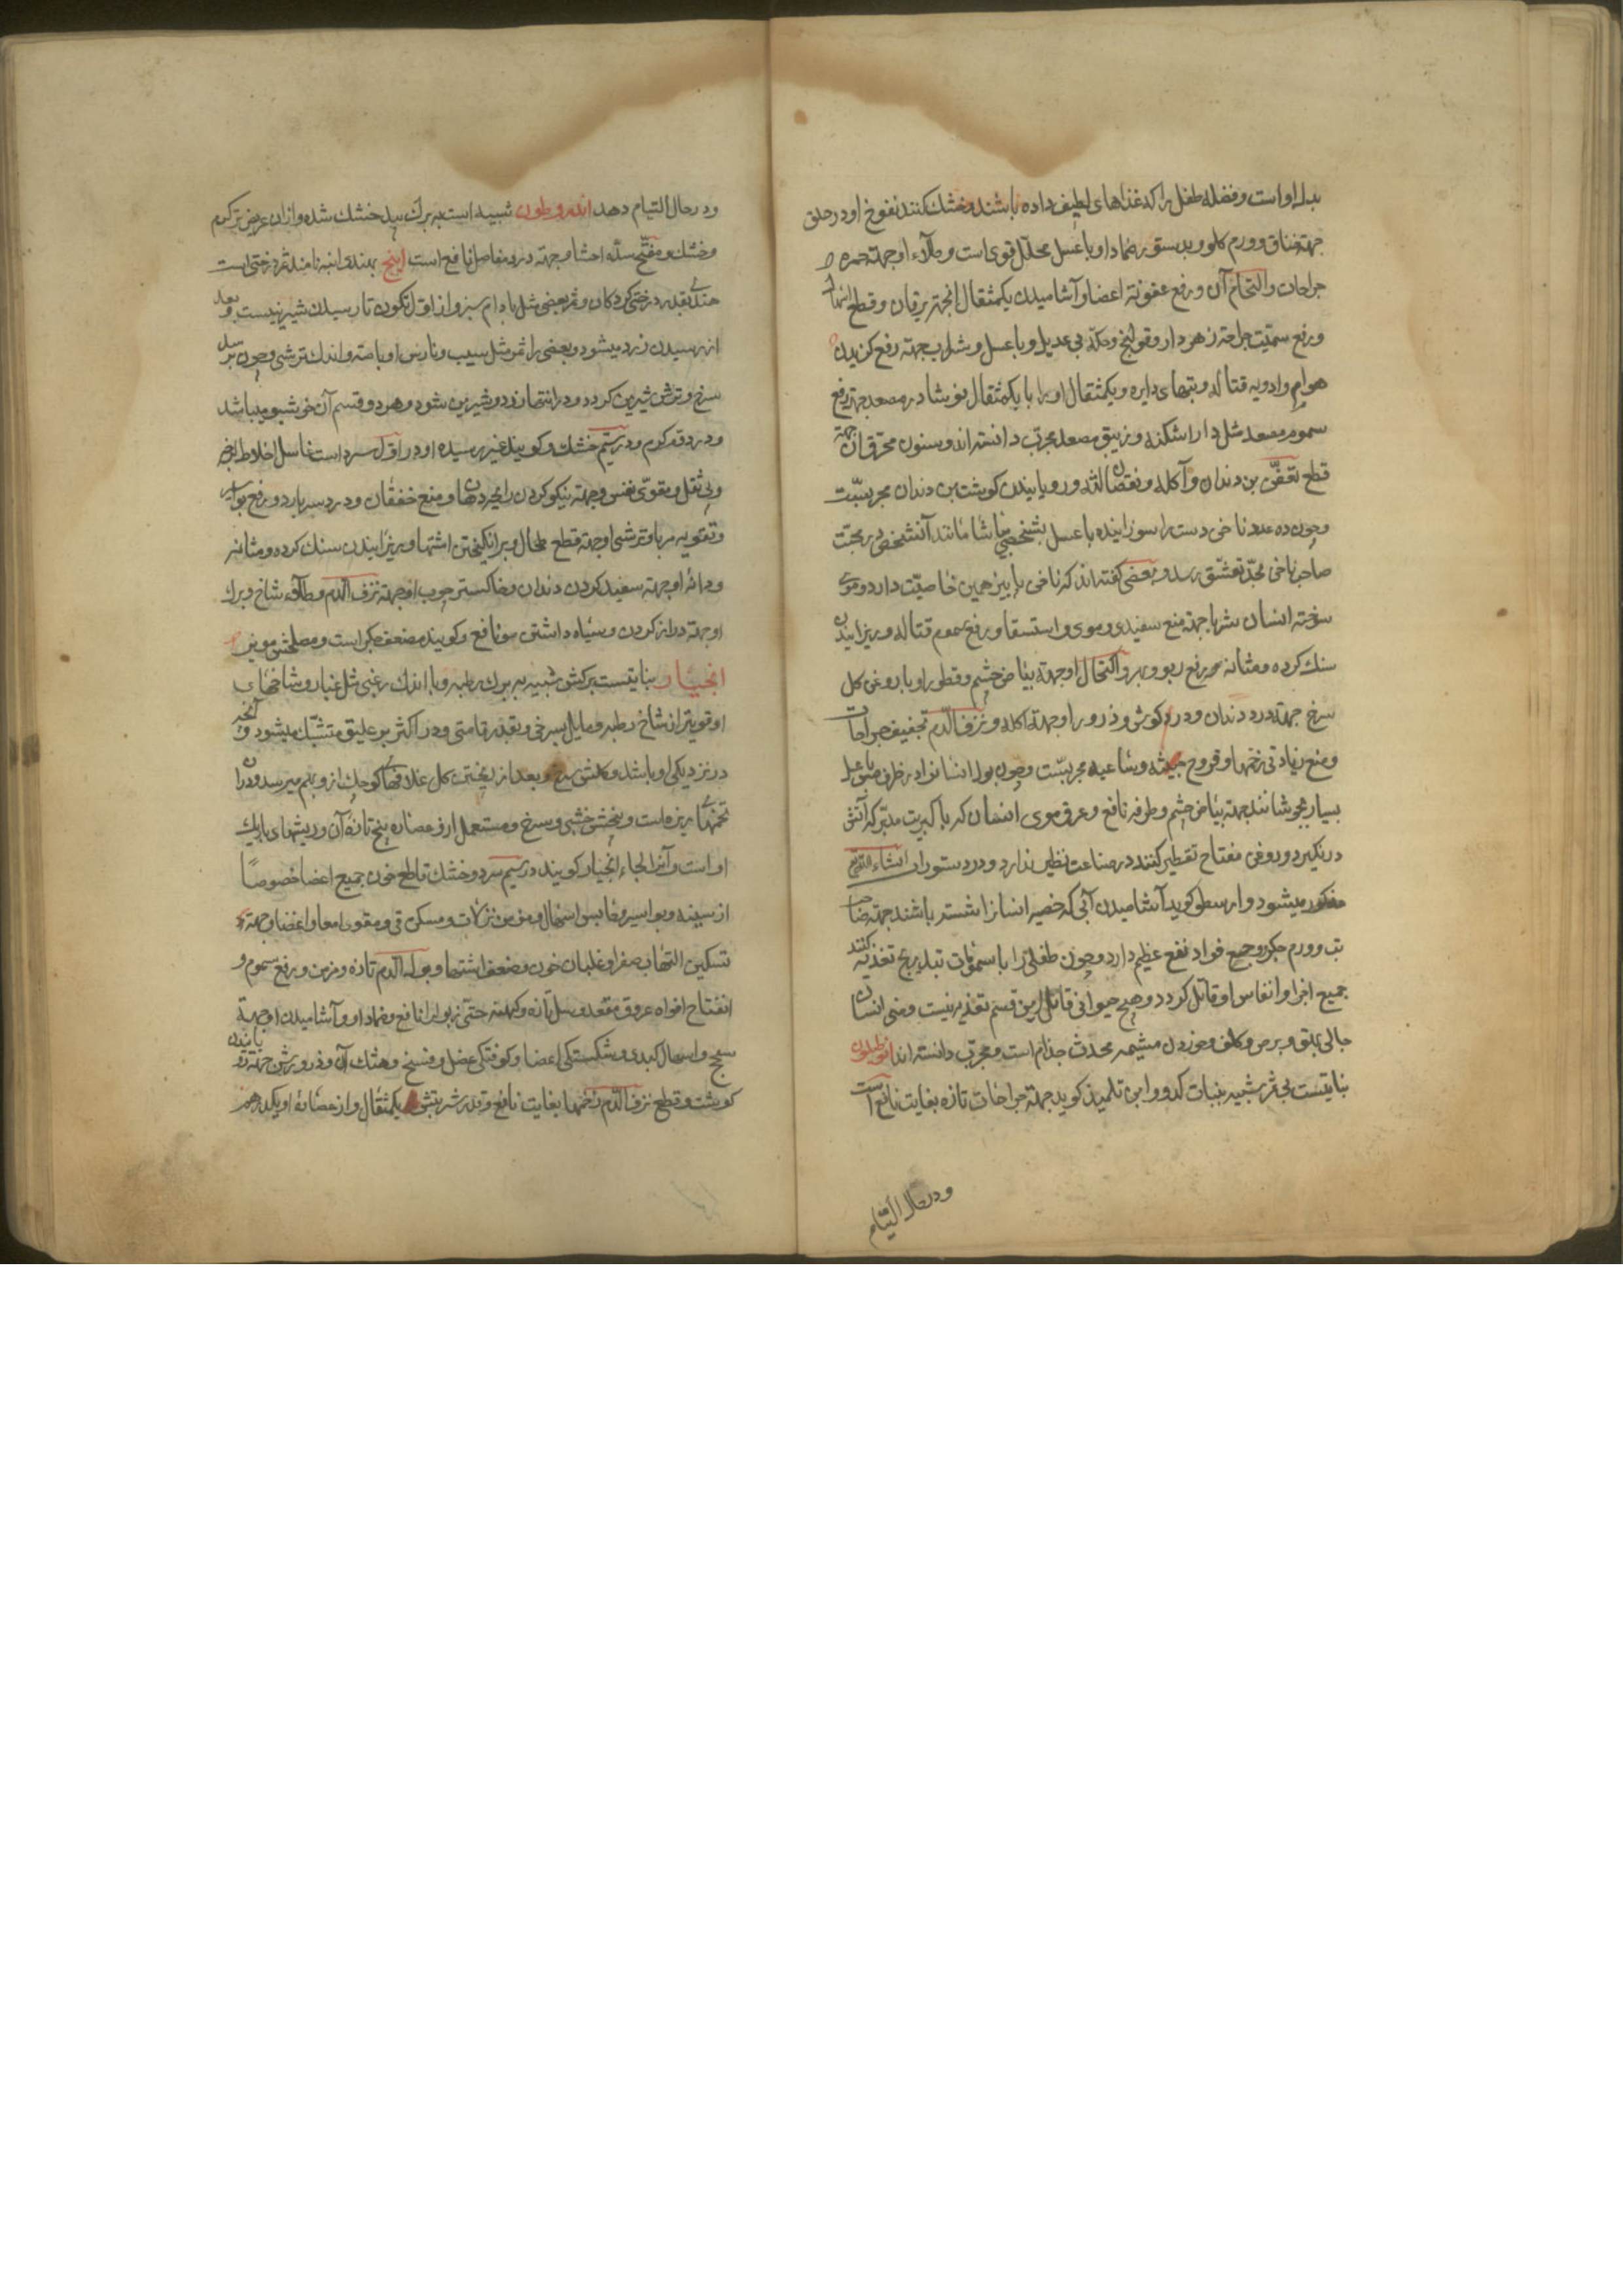 بدل او است و فضله طفل را که غذاهای لطیف داده باشند و خشک کنند نفوخ او در حلق
جهة خناق و ورم کلو و بدستور ضماد او با عسل محلل قوی است و طلاء او جهة حمره و
جراحات و التحام آن و رفع عفونة اعضا و آشامیدن یکمثقال از جهة یرقان و قطع
و رفع سمیّت جراحة زهردار و قولنج و حکّه بی عدیل و با عسل و شراب جهة رفع کزیدن
هوام و ادویه قتاله و تبهای دایره و یکمثقال او را با یکمثقال نوشادر مصعد جهة رفع
سموم مصعد مثل دار اشکنه و زیبق مصعد مجرّب دانسته اند و سنون محرق آن جهة
قطع تعفّن بن دندان و آکله و نقصان لثه و رویانیدن کوشت بن دندان مجربست
و چون ده عدد ناخن دست را سوزانیده با عسل بشخصی بیاشامانند آنشخص در محبّت
صاحب ناخن بحدّ تعشّق رسد و بعضی کفته اند که ناخن پا نیز همین خاصیّت دارد و موی
سوخته انسان شربا جهة منع سفیدی موی و استسقا و رفع سموم قتاله و ریزانیدن
سنک کرده و مثانه و رفع ربو و برو اکتحال او جهة بیاض چشم و قطور او با روغن کل
سرخ جهة درد دندان و درد کوش و ذرور او جهة آکله و نزف الدّم تجفیف جراحات
و منع زیادتی زخمها و قروح خبیثه و ساعیه مجربست و چون بول انسانرا در ظرف مس با عسل
بسیار بجوشانند جهة بیاض چشم و طرفه نافع و عرق موی انسان که با کبریت مدبّر که آتش
درنگیرد و روغن مفتاح تقطیر کنند در صناعت نظیر ندارد و در دستورات انشاء الله
مذکور میشود و ارسطو کوید آشامیدن آبی که خصیه انسانرا شسته باشند جهة صاحب
تب و ورم جکر و جمع فواد نفع عظیم دارد و چون طفلی را با سمومات بتدریج تغذیه کنند
جمیع اجزا و انفاس او قاتل کردد و هیچ حیوانی قاتل از این قسم تغذیه نیست و منی انسان
جالی بهق و برص و کلف و خوردن مشیمه محدث جذام است و مجرّب دانسته اند انوطیلون
نباتیست بی ثمر شبیه بنبات کدو و ابن تلمیذ کوید جهة جراحات تازه بغایت نافع است
و در حال التیام
و در حال التیام دهد اندروطون شبیه است به برک بید خشک شده و از ان عریض تر کرم
و خشک و مفتّح سدّه احشا و جهة درد مفاصل نافع است انبج بهندی انبه نامند ثمر درختی است
هندی بقدر درختی کردکان و ثمر بعضی مثل بادام سبز و از اول تکون تا رسیدن شیرین نیست و بعد
از رسیدن زرد میشود و بعضی را ثمر مثل سیب و نارس او با صفره و اندک ترشی و چون برسد
سرخ و ترش شیرین کردد و در انتها زرد و شیرین شود و هر دو قسم آن خوشبو میباشد
و در دوّم کرم و در سیّم خشک و کویند غیر رسیده او در اوّل سرد است غاسل اخلاط لزجه
و بی ثقل و مقوی نفس و جهة نیکو کردن رایحه دهان و منع خفقان و درد سر بارد و رفع بواسیر
و تقویه مربا و ترشی او جهة قطع طحال و برانکیختن اشتها و ریزانیدن سنک کرده و مثانه
و دانه او جهة سفید کردن دندان و خاکستر چوب او جهة نزف الدّم و طلای شاخ و برک
او جهة دراز کردن و سیاه داشتن مو نافع و کویند مضعف جکر است و مصلحش مویز
انجبار نباتیست برکش شبیه به برک رطبه و با اندک زغبی مثل غبار و شاخهای
او قوی تر از شاخ رطبه و مایل بسرخی و بقدر قامتی و در اکثر بر علیق متشبّک میشود و آنچه
در نزدیکی او باشد و کلش سرخ و بعد از ریختن کل غلافهای کوچک از و بهم میرسد و در آن
تخمهای ریزه است و بیخش خشبی و سرخ و مستعمل از و عصاره بیخ تازه آن و ریشهای باریک
او است و آنرا لحاء انجبار کویند در سیم سرد و خشک قاطع خون جمیع اعضا خصوصاً
از سینه و بواسیر و حابس اسهال مزمن و نزلات و مسکن قی و مقوی امعا و اعضا و جهة
تسکین التهاب صفرا و غلیان خون و ضعف اشتها و بول الدّم تازه و مزمن و رفع سموم و
انفتاح افواه عروق مقعد و سل تازه و کهنه حتی ذبول را نافع و ضماد او و آشامیدن او جهة
سحج و اسهال کبدی و شکستکی اعضا و کوفتکی عضل و فسخ و هتک آن و ذرورش جهة رویانیدن
کوشت و قطع نزف الدّم زخمها بغایت نافع و قدر شربتش یکمثقال و از عصاره او یکدرهم